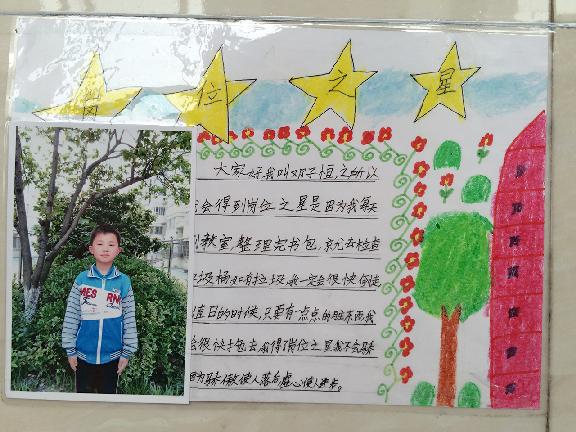 岗位之星
大家好我叫邓子恒，之所以
会得到岗位之星是因为我每天
到教室，整理完书包，就去检查
垃圾桶，如有垃圾，我一定会很快倒掉
值日的时候，只要有一点点的脏东西我
会很快扫去，取得了岗位之星我不会骄
因为骄傲使人落后虚心使人进步。